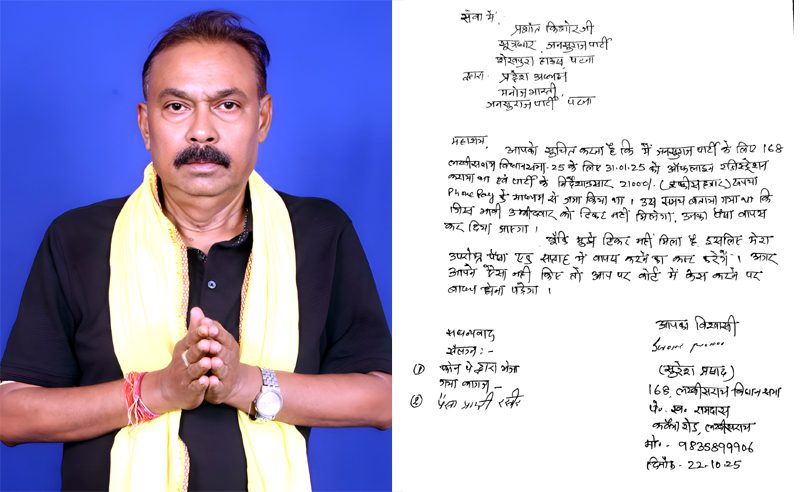 सेवा में,
प्रशांत किशोर जी
सूत्रधार, जनसुराज पार्टी
शेखपुरा हाउस पटना
द्वारा. प्रदेश अध्यक्ष
मनोज भारती,
जनसुराज पार्टी पटना
महाशय,
आपको सूचित करना है कि मैं जनसुराज पार्टी के लिए 168
लखीसराय विधानसभा-25 के लिए 31.01.25 को ऑफलाइन रजिस्ट्रेशन
कराया था एवं पार्टी के निर्देशानुसार 21000/. (इक्कीस हजार) रूपया
Phone Pay के माध्यम से जमा किया था। उस समय बताया गया था कि
जिस भावी उम्मीदवार को टिकट नहीं मिलेगा, उनका पैसा वापस
कर दिया जाएगा।
चूँकि मुझे टिकट नहीं मिला है इसलिए मेरा
उपरोक्त पैसा एक सप्ताह में वापस करने का कष्ट करेंगे। अगर
आपने ऐसा नहीं किए तो आप पर कोर्ट में केस करने पर
बाध्य होना पड़ेगा।
सधन्यवाद
संलग्न :-
① फोन पे द्वारा भेजा
गया कागज -
② पैसा प्राप्ती रसीद
आपका विश्वासी
(सुरेश प्रसाद)
168, लखीसराय विधान सभा
पे. स्व. रामदास
रोड, लखीसराय
मो. - 9835899906
दिनांक - 22.10.25